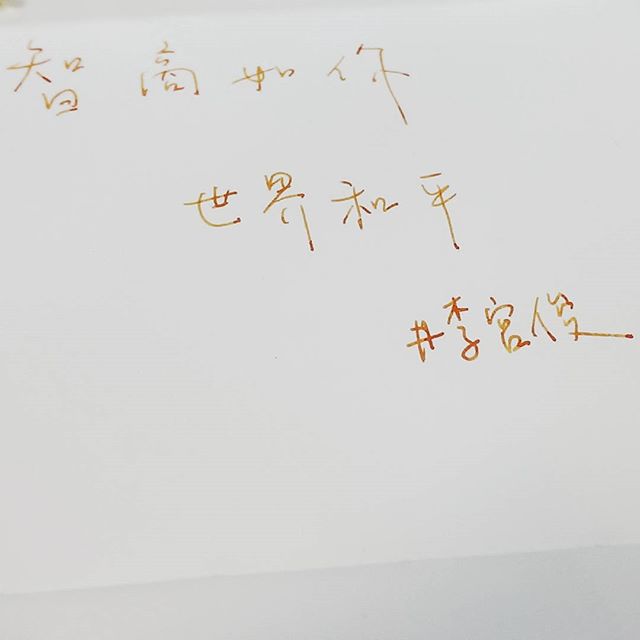 智高如你
世界和平
#李宮俊